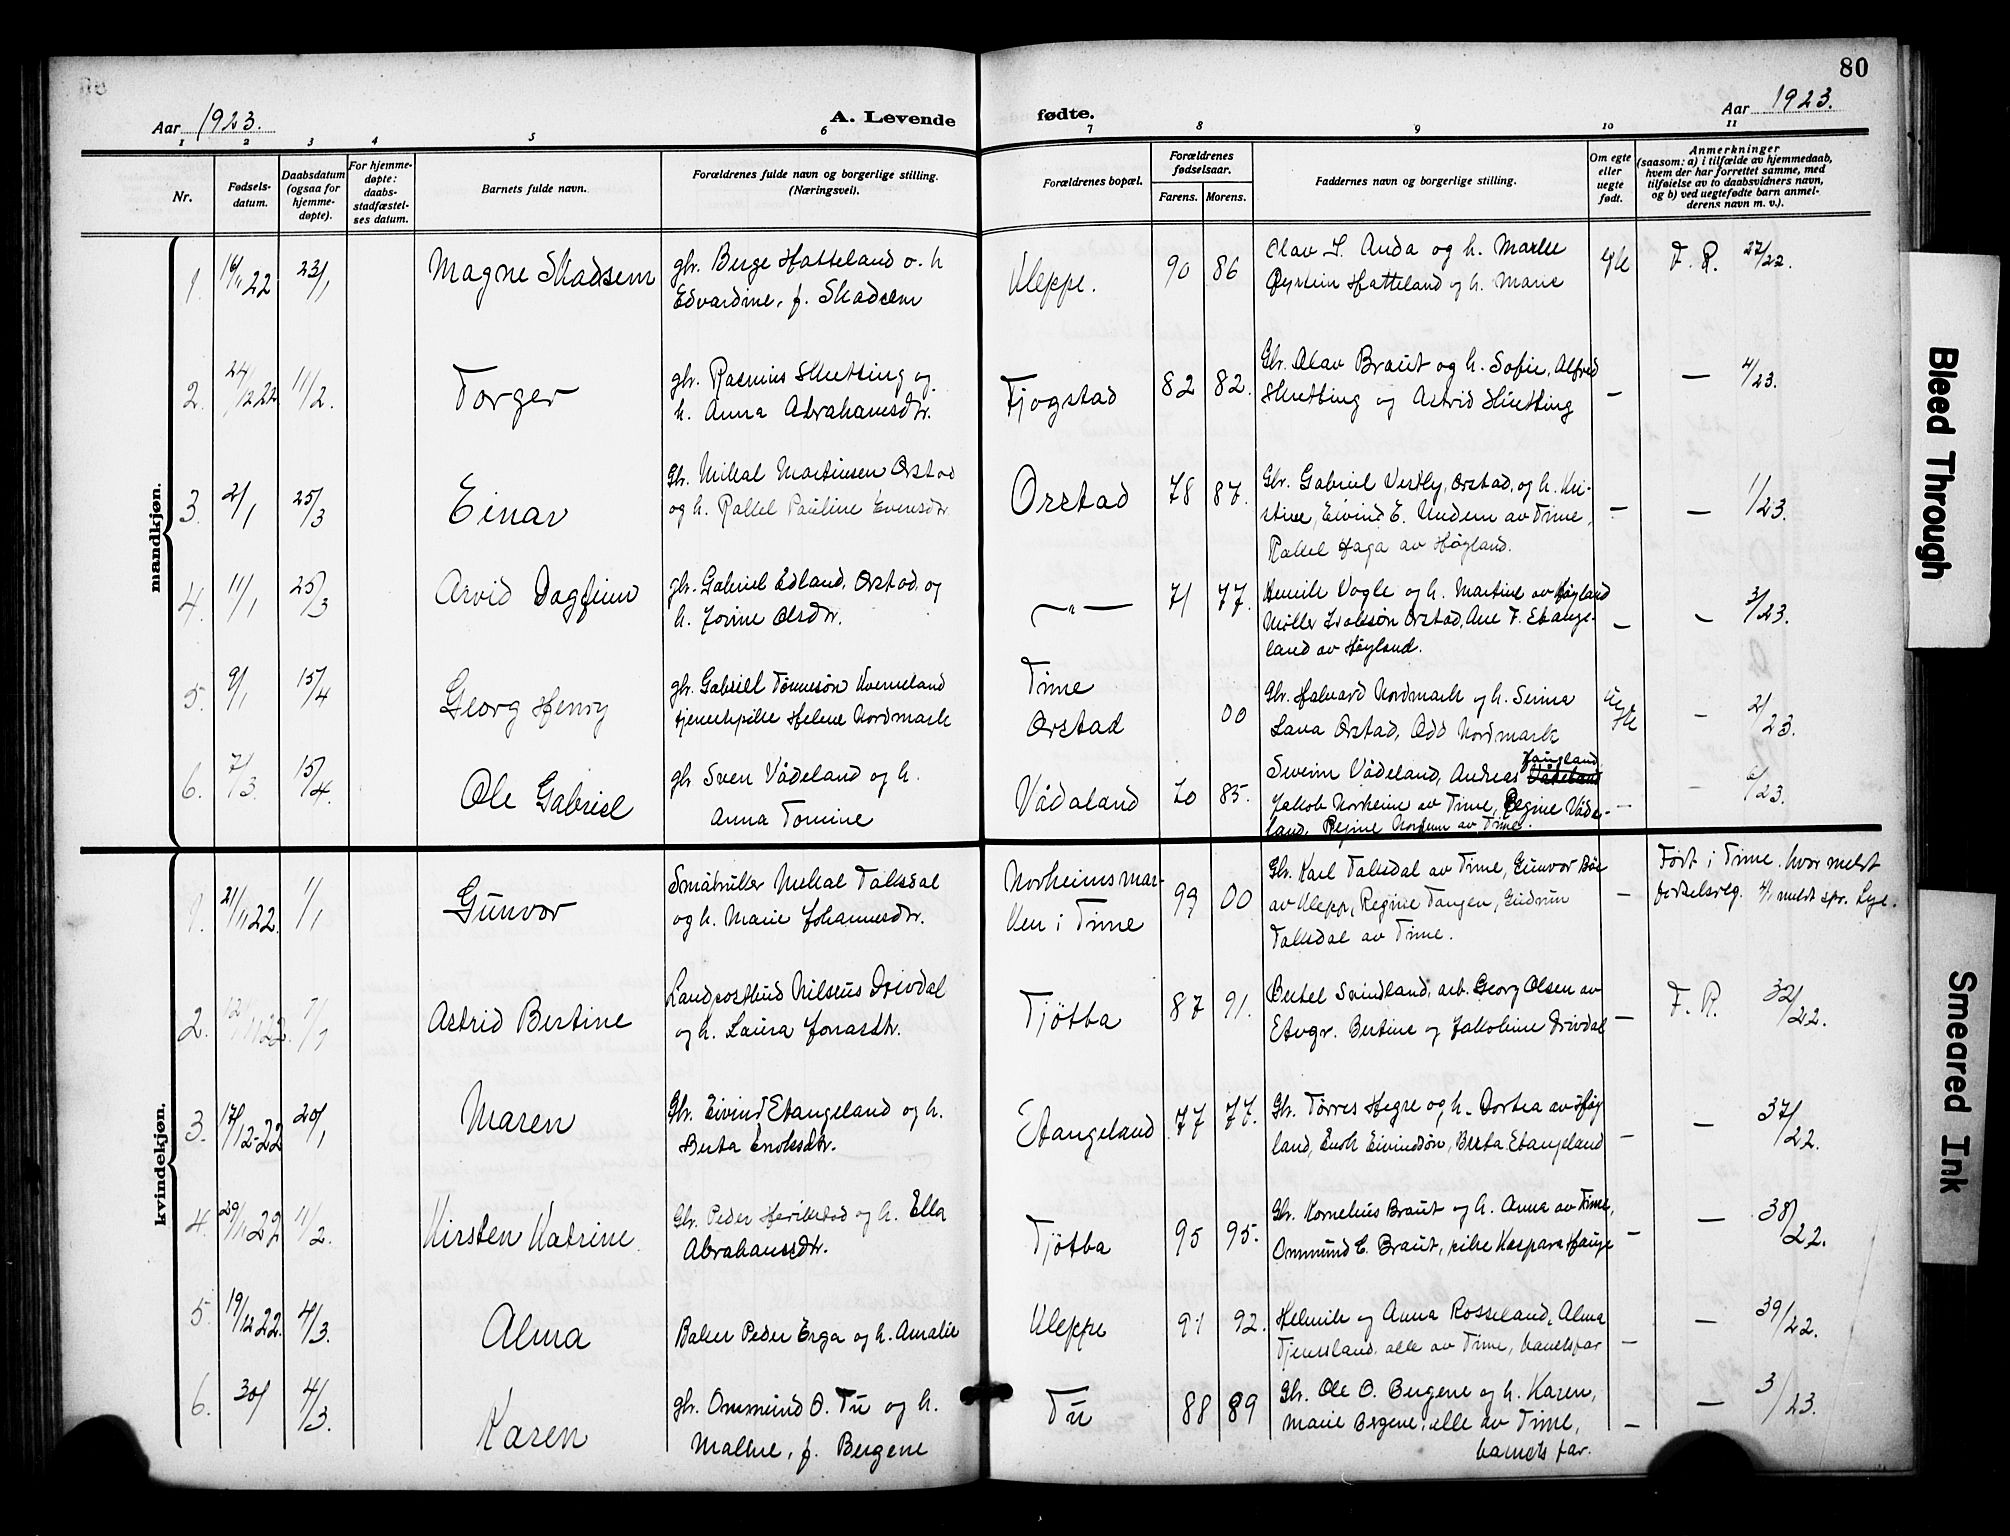 80
Aar 1923.
A. Levende fødte.
Aar 1923.
1 2 3 4 5 6 7 8 9 10 11
Nr.
Fødsels-
datum.
Daabsdatum
(ogsaa for
hjemme-
døpte).
For hjemme-
døpte:
daabs-
stadfæstel-
ses datum.
Barnets fulde navn.
Forældrenes fulde navn og borgerlige stilling.
(Næringsvei).
Forældrenes bopæl.
Forældrenes
fødselsaar.
Farens. Morens.
Faddernes navn og borgerlige stilling.
Om egte
eller
uegte
født.
Anmerkninger
(saasom: a) i tilfælde av hjemmedaab,
hvem der har forrettet samme, med
tilføielse av to daabsvidners navn,
og b) ved uegtefødte barn anmel-
derens navn m. v.).
mandkjøn.
1. 16/11 22 23/1 Magne Skadsem
gbr. Berge Hatteland o. h
Edvardine, f. Skadsem
Kleppe. 90 86
Olav I. Anda og h. Marte
Øystein Hatteland og h. Marie
F. R. 27/22.
2. 24/12 22 11/2. Torger
gbr. Rasmus Skretting og
h. Anna Abrahamsdtr.
Fjogstad 82 82.
Gbr. Olav Braut og h. Sofie, Alfred
Skretting og Astrid Skretting
— — 4/23.
3. 2/1 25/3 Einar
Gbr. Mikal Martinsen Orstad
og h. Rakel Pauline Evensdtr
Orstad 78 87.
Gbr. Gabriel Vestly, Orstad, og h. Kri-
stine, Eivind E. Undem av Time,
Rakel Haga av Høyland.
— — 1/23.
4. 11/1 25/3 Arvid Dagfinn
gbr. Gabriel Edland, Orstad, og
h. Jorine Olsdtr.
—"— 71 77.
Henrik Vagle og h. Martine av Høyland
Møller Isaksøn Orstad, Ane F. Etange-
land av Høyland.
— — 3/23.
5. 9/1 15/4 Georg Henry
gbr. Gabriel Tønnesøn Kverneland
tjenestpike Helene Nordmark
Time
Orstad 00
Gbr. Halvard Nordmark og h. Serina
Lava Orstad, Odd Nordmark
— 2/23.
6. 7/3. 15/4. Ole Gabriel
gbr Sven Vådeland og h.
Anna Tomine
Vådaland 70 85.
Sveinn Vådeland, Andreas Vådeland
Jakob Norheim av Time, Regine Våde-
land, Regine Norheim av Time.
— — 6/23.
kvindekjøn.
1. 21/11 22. 1/1 Gunvor
Småbruker Mikal Taksdal
og h. Marie Johannesdtr.
Norheimsmar-
ken i Time 99 00
Gbr. Karl Taksdal av Time, Gunvor Bøe
av Klepp, Regine Tangen, Gudrun
Taksdal av Time.
—
Født i Time, hvor meldt
fødselsreg.
2. 12/11 22. 7/1 Astrid Bertine
Landpostbud Nilseus Drivdal
og h. Laura Jonasdtr.
Tjøtba 87 91.
Bertel Svindland, arb. Georg Olsen av
Etvgr. Bertine og Jakobine Drivdal
— F. R. 32/22.
3. 17/12-22 20/1 Maren
Gbr. Eivind Etangeland og h.
Berta Enoksdtr.
Etangeland 77 77.
Gbr. Tørres Hegre og h. Dortea av Høy
land, Enok Eivindsøn, Berta Etangeland
— — 37/22.
4. 29/11 22 11/2. Kirsten Katrine
Gbr. Peder Herikstad og h. Ella
Abrahamsdtr.
Tjøtba 95 95.
Gbr. Kornelius Braut og h. Anna av Time,
Ommund E. Braut, pike Kaspara Hauge
— — 38/22.
5. 19/12 22. 4/3. Alma
Baker Peder Erga og h. Amalie
Kleppe 91 92.
Helmik og Anna Rosseland, Alma
Tjensland, alle av Time, barnets far
— — 39/22.
6. 4/3. Karen
gbr. Ommund O. Tu og h.
Malene, f. Bergene
Tu 88 89
Gbr. Ole O. Bergene og h. Karen,
Marie Bergene, alle av Time,
barnets far.
— — 3/23.
Bleed Through
Smeared Ink